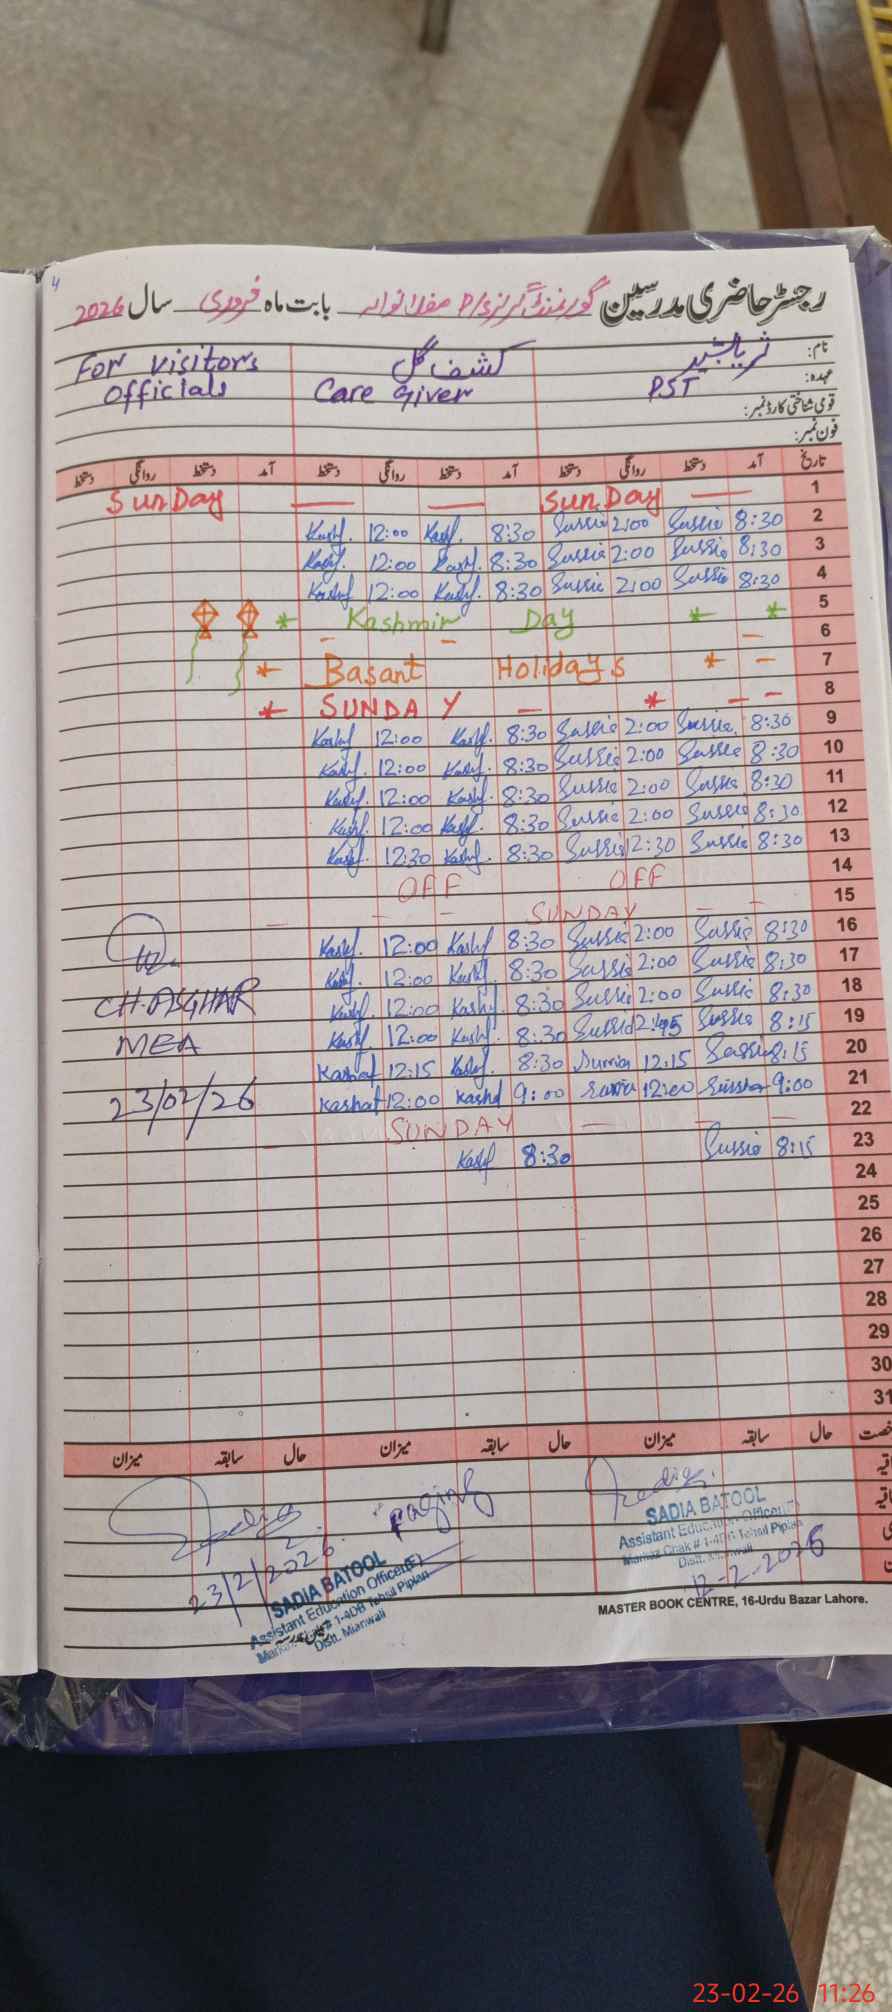 4
رجسٹر حاضری مدرسین گورنمنٹ گرلز P/S مغلانوالہ بابت ماہ فروری سال 2026
نام: کشف گل For visitors
عہدہ: PST Care Giver Officials
قومی شناختی کارڈ نمبر:
فون نمبر:
تاریخ آمد دستخط روانگی دستخط آمد دستخط روانگی دستخط آمد دستخط روانگی دستخط
1 SunDay SunDay
2 8:30 Sussie 2:00 Sussie 8:30 Kashf. 12:00 Kashf.
3 8:30 Sussie 2:00 Sussie 8:30 Kashf. 12:00 Kashf.
4 8:30 Sussie 2:00 Sussie 8:30 Kashf. 12:00 Kashf
5 Kashmir Day
6
7 Basant Holidays
8 SUNDAY
9 8:30 Sussie 2:00 Sussie 8:30 Kashf. 12:00 Kashf
10 8:30 Sussie 2:00 Sussie 8:30 Kashf. 12:00 Kashf.
11 8:30 Sussie 2:00 Sussie 8:30 Kashf. 12:00 Kashf.
12 8:30 Sussie 2:00 Sussie 8:30 Kashf. 12:00 Kashf.
13 8:30 Sussie 12:30 Sussie 8:30 Kashf. 12:30 Kashf.
14 OFF OFF
15 SUNDAY
16 8:30 Sussie 2:00 Sussie 8:30 Kashf 12:00 Kashf.
17 8:30 Sussie 2:00 Sussie 8:30 Kashf. 12:00 Kashf.
18 8:30 Sussie 2:00 Sussie 8:30 Kashf 12:00 Kashf. CH. ASGHAR
19 8:15 Sussie Sussie 8:30 Kashf. 12:00 Kashf. MEA
20 8:15 Sussie 12:15 8:30 Kashf. 12:15 Kashaf
21 9:00 12:00 9:00 Kashf 12:00 Kashaf 23/02/26
22 SUNDAY
23 8:15 Sussie 8:30 Kashf
24
25
26
27
28
29
30
31
حال سابقہ میزان حال سابقہ میزان حال سابقہ میزان
Sadia.
SADIA BATOOL
Assistant Education Officer(F)
Markaz Chak # 1-4DB Tehsil Piplan
Distt. Mianwali
12-2-2026
Paging
Sadia
23/2/2026
SADIA BATOOL
Assistant Education Officer(F)
Markaz Chak # 1-4DB Tehsil Piplan
Distt. Mianwali
MASTER BOOK CENTRE, 16-Urdu Bazar Lahore.
23-02-26 11:26